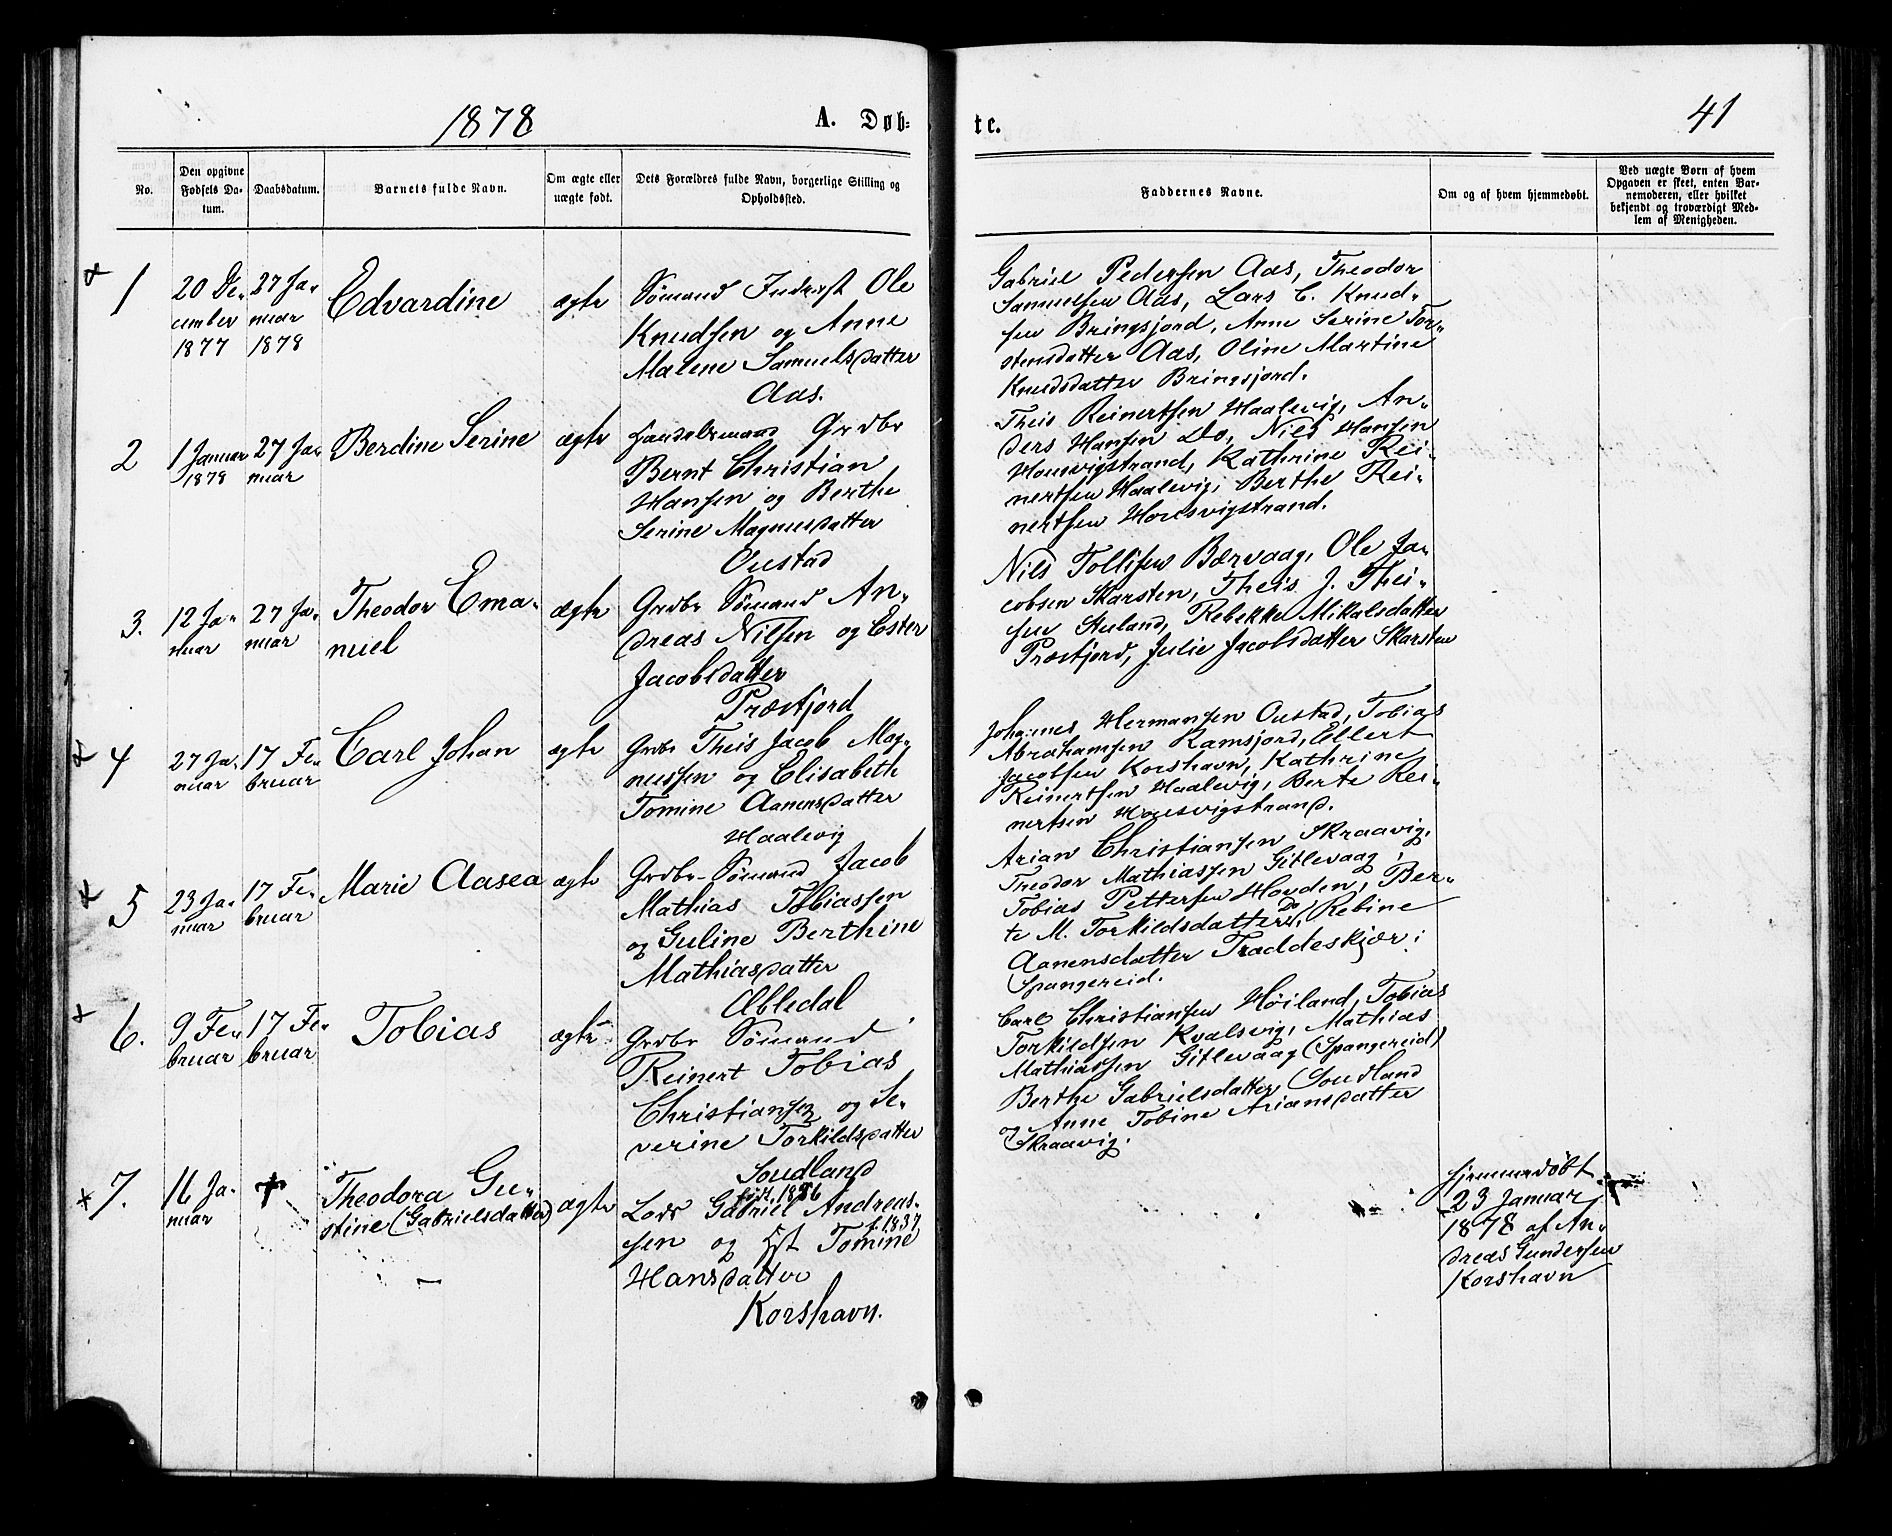 1878
A. Døb-
te.
41
No.
Den opgivne
Fødsels Da-
tum.
Daabsdatum.
Barnets fulde Navn.
Om ægte eller
uægte født.
Dets Forældres fulde Navn, borgerlige Stilling og
Opholdssted.
Faddernes Navne.
Om og af hvem hjemmedøbt.
Ved uægte Børn af hvem
Opgaven er skeet, enten Bar-
nemoderen, eller hvilket
bekjendt og troværdigt Med-
lem af Menigheden.
1
20 De-
cember
1877
27 Ja-
nuar
1878
Edvardine
ægte
Sømand Inderst Ole
Knudsen og Anne
Malene Samuelsdatter
Aas.
Gabriel Pedersen Aas, Theodor
Samuelsen Aas, Lars C. Knud-
sen Bringsjord, Anne Serine Tor-
stensdatter Aas, Oline Martine
Knudsdatter Bringsjord.
2
1 Januar
1878
27 Ja-
nuar
Berdine Serine
ægte
Handelsmand Grdbr
Bernt Christian
Hansen og Berthe
Serine Magnusdatter
Oustad
Theis Reinertsen Haalevig, An-
ders Hansen Do, Nils Hansen
Houesvigstrand, Kathrine Rei-
nertsen Haalevig, Berthe Rei-
nertsen Houesvigstrand.
3.
12 Ja-
nuar
27 Ja-
nuar
Theodor Ema-
nuel
ægte
Grdbr Sømand An-
dreas Nilsen og Ester
Jacobsdatter
Præstfjord
Nils Tollisen Bærvaag, Ole Ja-
cobsen Skarsten, Theis J. Thei-
sen Stuland, Rebekke Mikalsdatter
Præstfjord, Julie Jacobsdatter Skarsten
4
27 Ja-
nuar
17 Fe-
bruar
Carl Johan
ægte
Grdbr Theis Jacob Mag-
nussen og Elisabeth
Tomine Aanensdatter
Haalevig
Johannes Hermansen Oustad, Tobias
Abrahamsen Ramsjord, Ellert
Jacobsen Korshavn, Kathrine
Reinertsen Haalevig, Berte Rei-
nertsen Houesvigstrand.
5
23 Ja-
nuar
17 Fe-
bruar
Marie Aasea
ægte
Grdbr Sømand Jacob
Mathias Tobiassen
og Guline Berthine
Mathiasdatter
Æbledal
Arian Christiansen Skraavig,
Theodor Mathiassen Gitlevaag,
Tobias Pettersen Hovden, Ber-
te M. Torkildsdatter Do, Rebine
Aanensdatter Traddeskjær i
Spangereid.
6.
9 Fe-
bruar
17 Fe-
bruar
Tobias
ægte
Grdbr Sømand
Reinert Tobias
Christiansen og Se-
verine Torkildsdatter
Soudland
Carl Christiansen Høiland, Tobias
Torkildsen Kvalsvig, Mathias
Mathiassen Gitlevaag (Spangereid)
Berthe Gabrielsdatter Soudland
og Anne Tobine Ariansdatter
Skraavig.
7.
16 Ja-
nuar
Theodora Gu-
stine (Gabrielsdatter)
ægte
Lods Gabriel Andreas-
sen og Hst Tomine f. 1837
Hansdatter
Korshavn.
hjemmedøbt
23 Januar
1878 af An-
dreas Gundersen
Korshavn